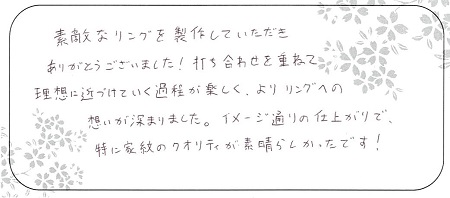 素敵なリングを製作していただき
ありがとうございました！打ち合わせを重ねて
理想に近づけていく過程が楽しく、よりリングへの
想いが深まりました。イメージ通りの仕上がりで、
特に家紋のクオリティが素晴らしかったです！